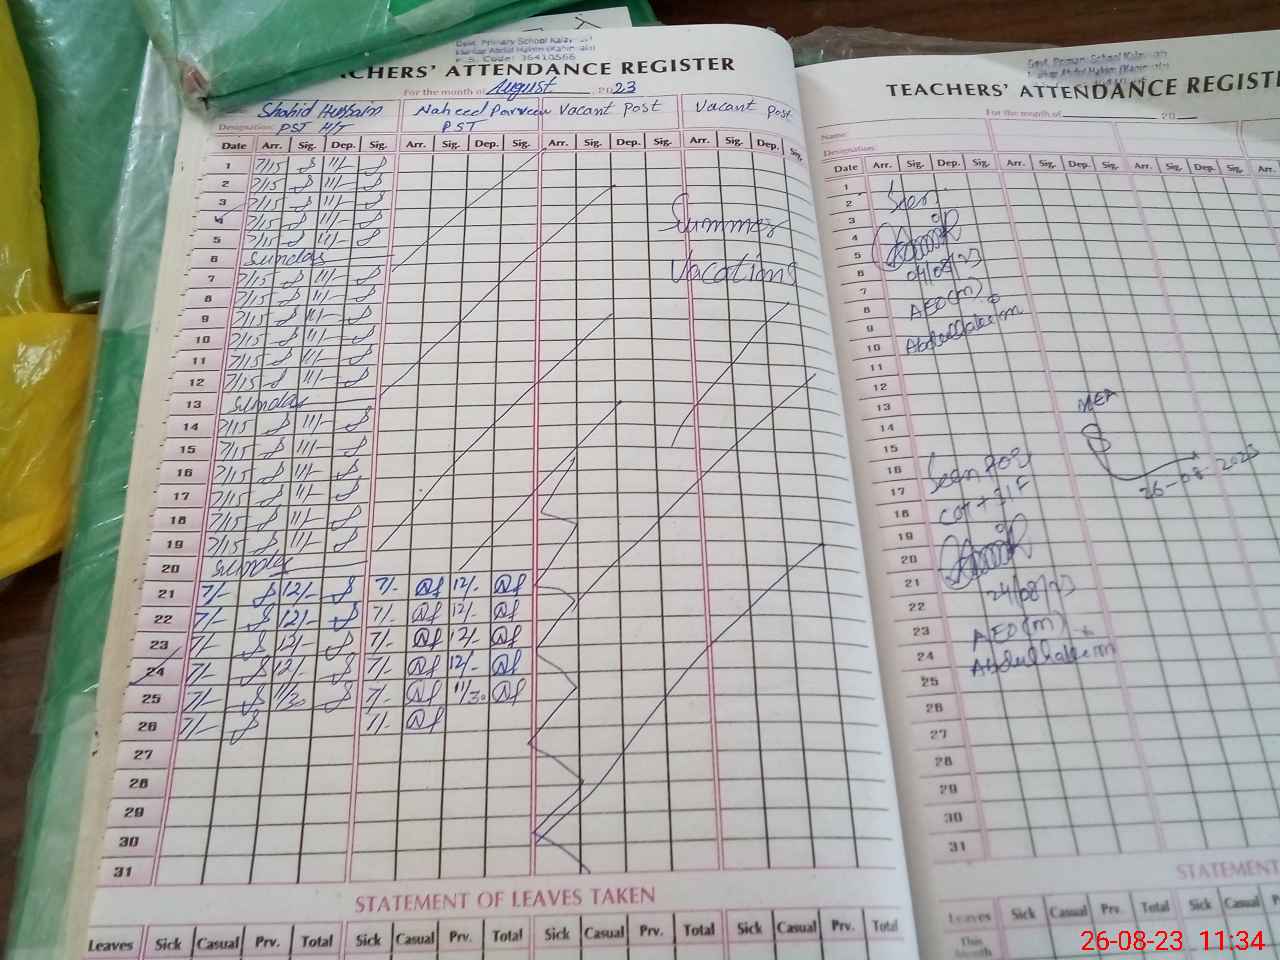 Govt. Primary School
Abdul Hakim
TEACHERS' ATTENDANCE REGISTER
For the month of August 2023
Shahid Hussain Naheed Parveen Vacant Post Vacant Post
Designation: PST H/T PST
Date Arr. Sig. Dep. Sig. Arr. Sig. Dep. Sig. Arr. Sig. Dep. Sig. Arr. Sig. Dep. Sig.
1 7/15 11/-
2 7/15 11/-
3 7/15 11/-
4 7/15 11/-
5 7/15 11/-
6 Sunday
7 7/15 11/-
8 7/15 11/-
9 7/15 11/-
10 7/15 11/-
11 7/15 11/-
12 7/15 11/-
13 Sunday
14 7/15 11/-
15 7/15 11/-
16 7/15 11/-
17 7/15 11/-
18 7/15 11/-
19 7/15 11/-
20 Sunday
21 7/- 12/- 7/- 12/-
22 7/- 12/- 7/- 12/-
23 7/- 12/- 7/- 12/-
24 7/- 12/- 7/- 12/-
25 7/- 11/30 7/- 11/30
26 7/- 7/-
27
28
29
30
31
Summer
Vacations
STATEMENT OF LEAVES TAKEN
Leaves Sick Casual Prv. Total Sick Casual Prv. Total Sick Casual Prv. Total Sick Casual Prv. Total
Govt. Primary School
TEACHERS' ATTENDANCE REGIST
For the month of 20
Name:
Designation:
Date Arr. Sig. Dep. Sig. Arr. Sig. Dep. Sig. Arr. Sig. Dep. Sig. Arr.
1
2
3
4
5
6
7
8
9
10
11
12
13
14
15
16
17
18
19
20
21
22
23
24
25
26
27
28
29
30
31
Seen
04/08/23
AEO(m)
Abdulhakeem
MEA
26-08-2023
Seen for
24/08/23
AEO(m)
Abdulhakeem
STATEMENT
Leaves Sick Casual Prv. Total Sick Casual Prv.
This Month
26-08-23 11:34